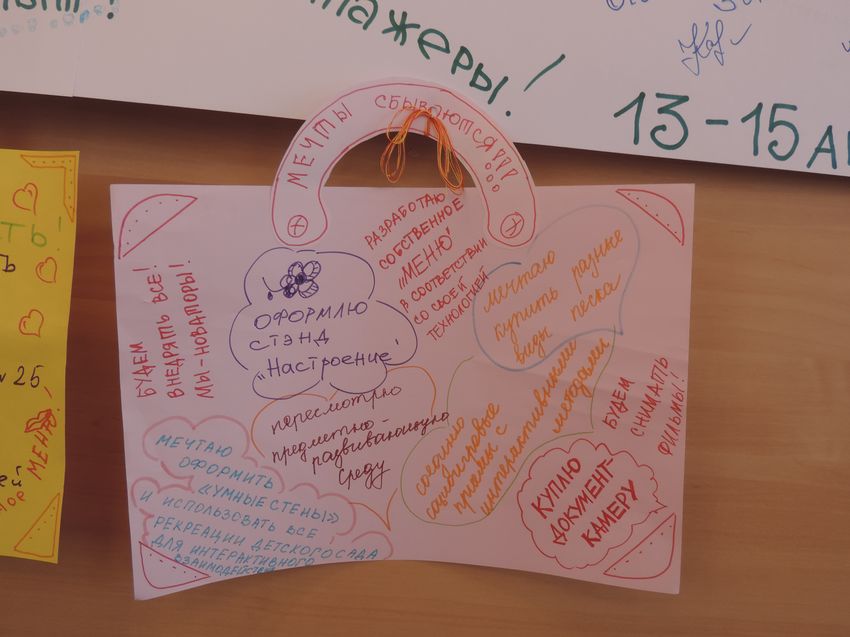 тажеры!
13-15 А
МЕЧТЫ СБЫВАЮТСЯ!!!
РАЗРАБОТАЮ
СОБСТВЕННОЕ
„МЕНЮ"
В СООТВЕТСТВИИ
СО СВОЕЙ
ТЕХНОЛОГИЕЙ
БУДЕМ
ВНЕДРЯТЬ ВСЕ!
МЫ-НОВАТОРЫ!
ОФОРМЛЮ
СТЭНД
„Настроение"
мечтаю
купить разные
виды песка
пересмотрю
предметно-
развивающую
среду
соединю
социоигровые
приемы с
интерактивными
методами
БУДЕМ
СНИМАТЬ
ФИЛЬМЫ!!
МЕЧТАЮ
ОФОРМИТЬ
«УМНЫЕ СТЕНЫ»
И ИСПОЛЬЗОВАТЬ ВСЕ
РЕКРЕАЦИИ ДЕТСКОГО САДА
ДЛЯ ИНТЕРАКТИВНОГО
ВЗАИМОДЕЙСТВИЯ
КУПЛЮ
ДОКУМЕНТ-
КАМЕРУ
ть!
25
МЕНЮ!
ей